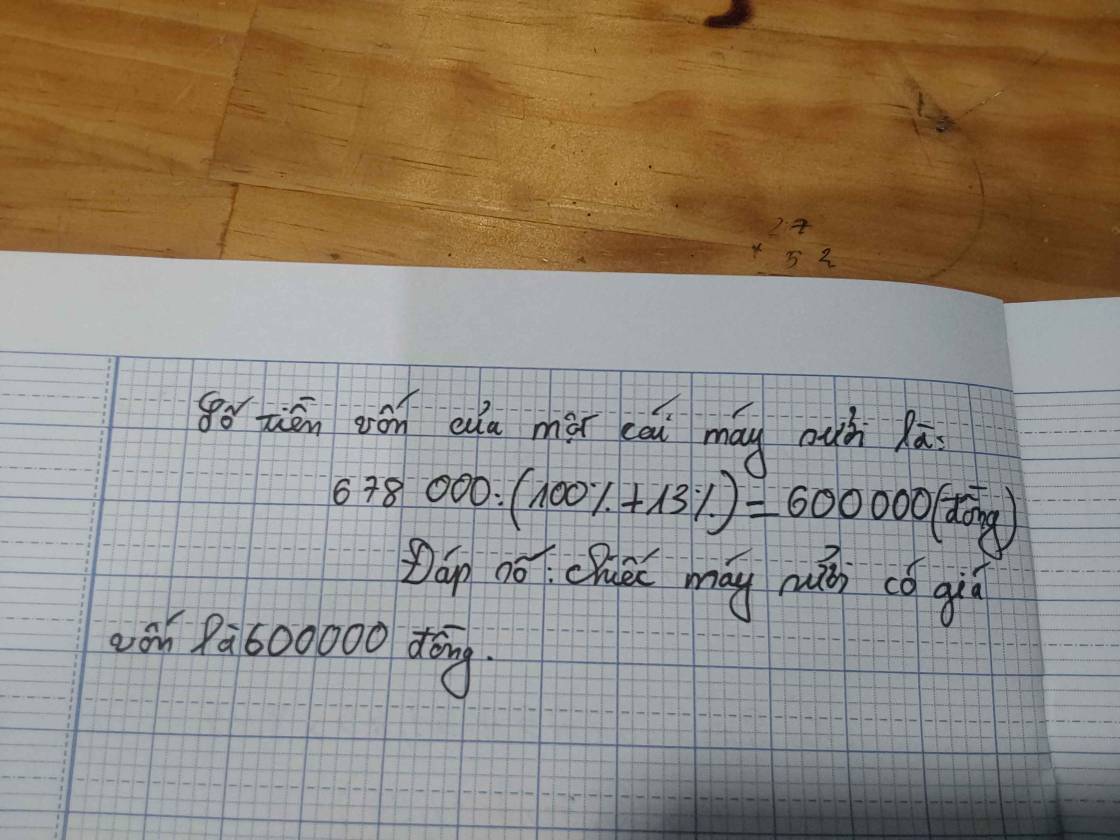 27
+ 52
Số tiền vốn của một cái máy sưởi là:
678 000:(100%+13%)=600000(đồng)
Đáp số: Chiếc máy sưởi có giá
vốn là 600000 đồng.